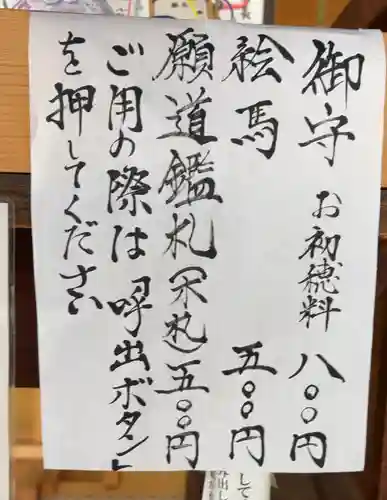 御守 お初穂料 八〇〇円
絵馬 五〇〇円
願道鑑札(木札)五〇〇円
ご用の際は「呼出ボタン」
を押してください